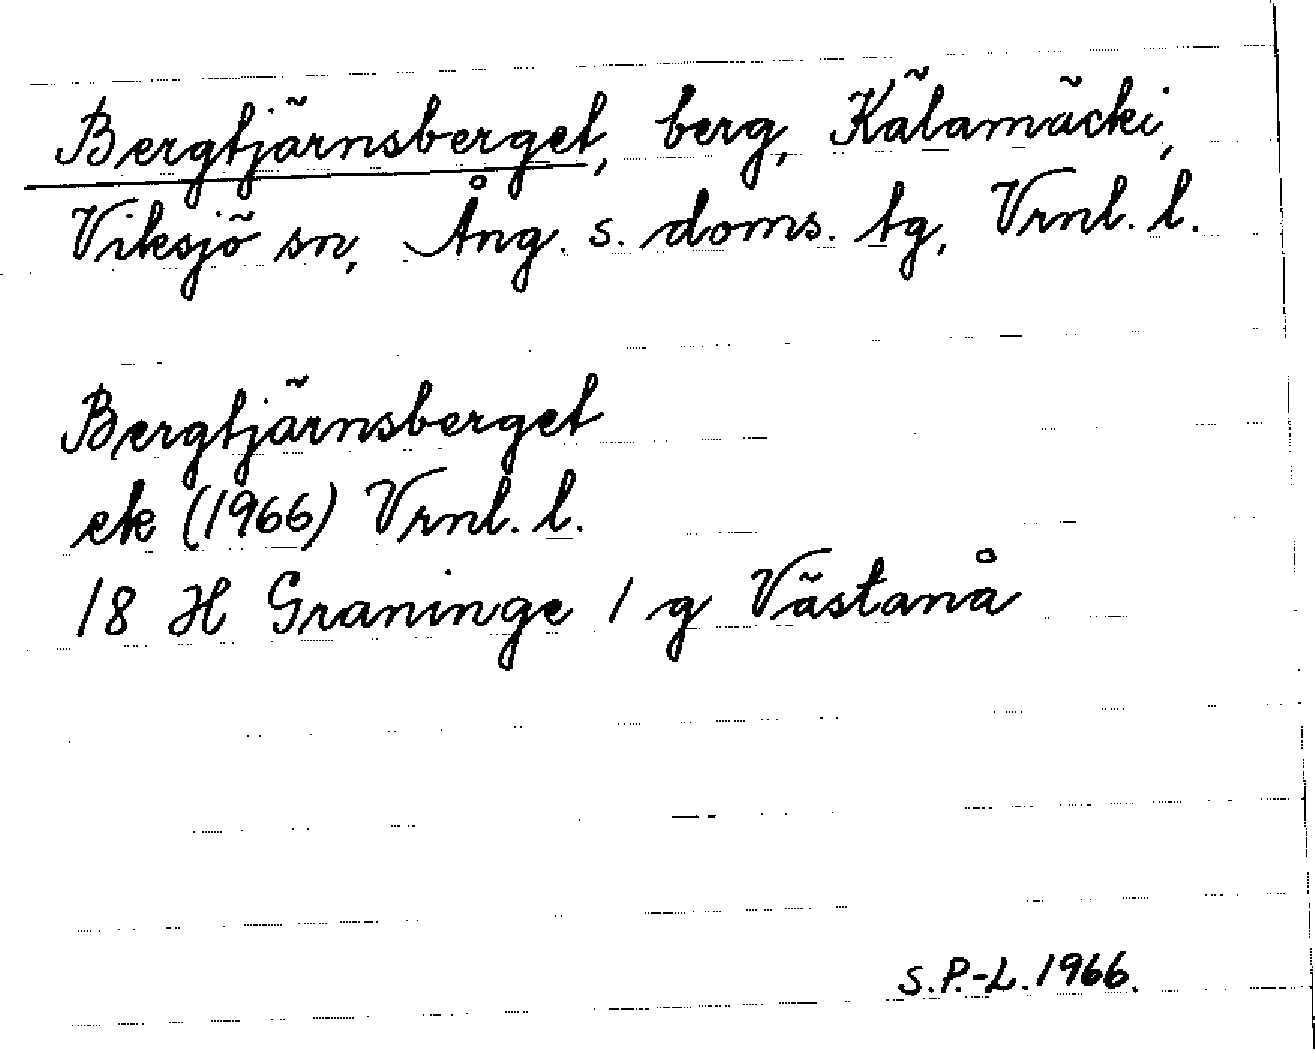 Bergtjärnsberget, berg, Kälamäcki,
Viksjö sn, Ång. s. doms. tg, Vrnl. l.
Bergtjärnsberget
ek (1966) Vrnl. l.
18 H Graninge 1 g Västanå
S.P.-L. 1966.